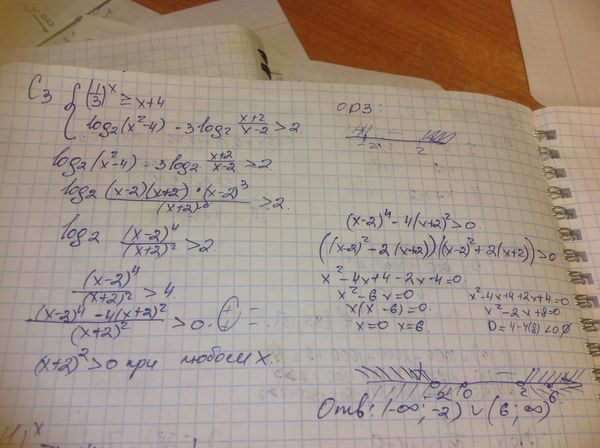 С3 { (1/3)^x ≥ x+4
log2(x²-4) - 3log2 (x+2)/(x-2) > 2
log2(x²-4) - 3log2 (x+2)/(x-2) > 2
log2 ((x-2)(x+2)·(x-2)³)/(x+2)³ > 2
log2 (x-2)⁴/(x+2)² > 2
(x-2)⁴/(x+2)² > 4
((x-2)⁴ - 4(x+2)²)/(x+2)² > 0.
(x+2)² > 0 при любом x.
ОДЗ:
-2 2
(x-2)⁴ - 4(x+2)² > 0
((x-2)² - 2(x+2))((x-2)² + 2(x+2)) > 0
x² - 4x + 4 - 2x - 4 = 0
x² - 6x = 0
x(x-6) = 0
x=0 x=6
x² - 4x + 4 + 2x + 4 = 0
x² - 2x + 8 = 0
D = 4 - 4(8) < 0 ∅
-2 0 2 6
Отв: (-∞; -2) ∪ (6; ∞)